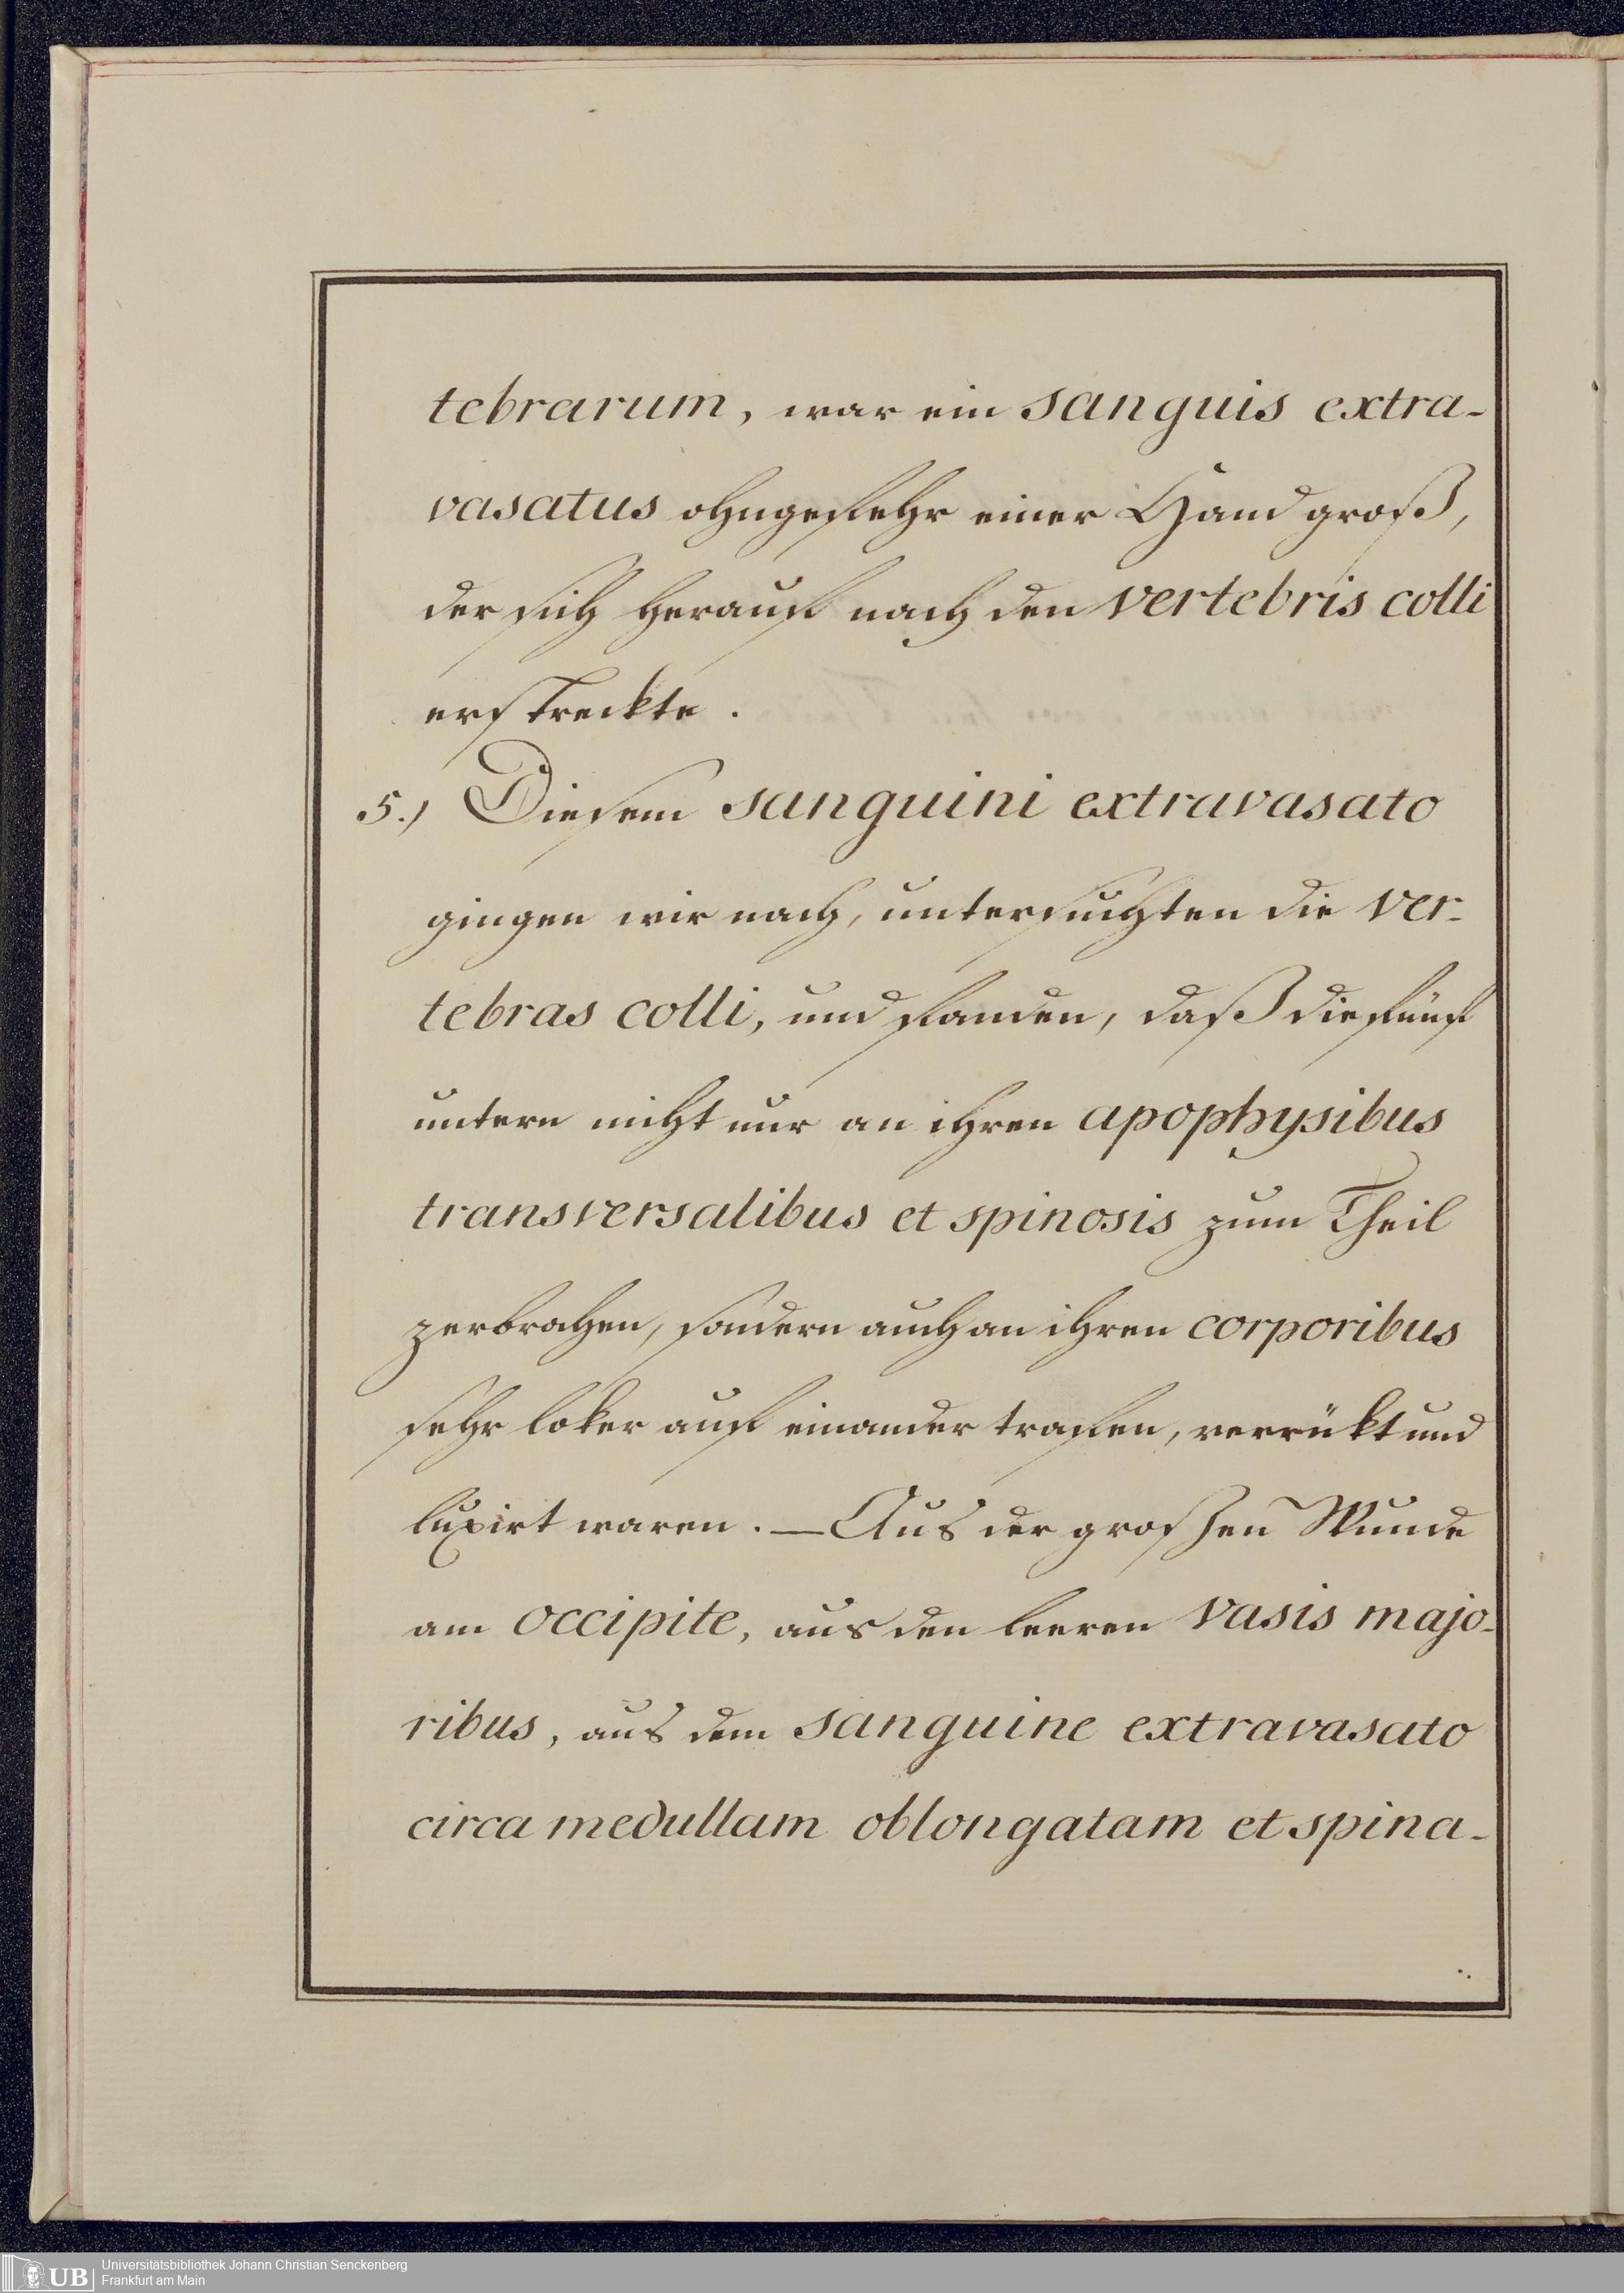 tebrarum, war ein sanguis extra-
vasatus ohngefehr einer Hand groß,
der sich herauf nach den vertebris colli
erstreckte.
5.) Diesem sanguini extravasato
gingen wir nach, untersuchten die ver-
tebras colli, und fanden, daß die fünf
untern nicht nur an ihren apophysibus
transversalibus et spinosis zum Theil
zerbrochen, sondern auch an ihren corporibus
sehr loker auf einander trafen, verrükt und
luxirt waren. — Aus der großen Wunde
am occipite, aus den leeren vasis majo-
ribus, aus dem sanguine extravasato
circa medullam oblongatam et spina-
UB Universitätsbibliothek Johann Christian Senckenberg
Frankfurt am Main